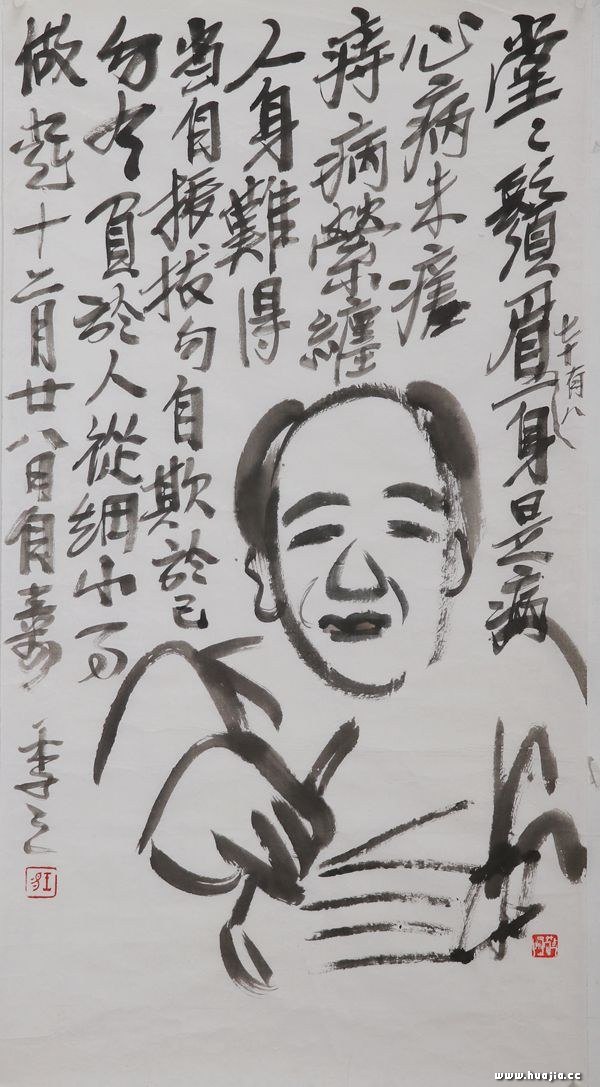 堂〻鬚眉一身是病
七十有八
心病未瘥
痔病縈纏
人身難得
當自振拔勿自欺於己
勿令負於人從細小而
做起十二月廿八日自壽
www.huajia.cc